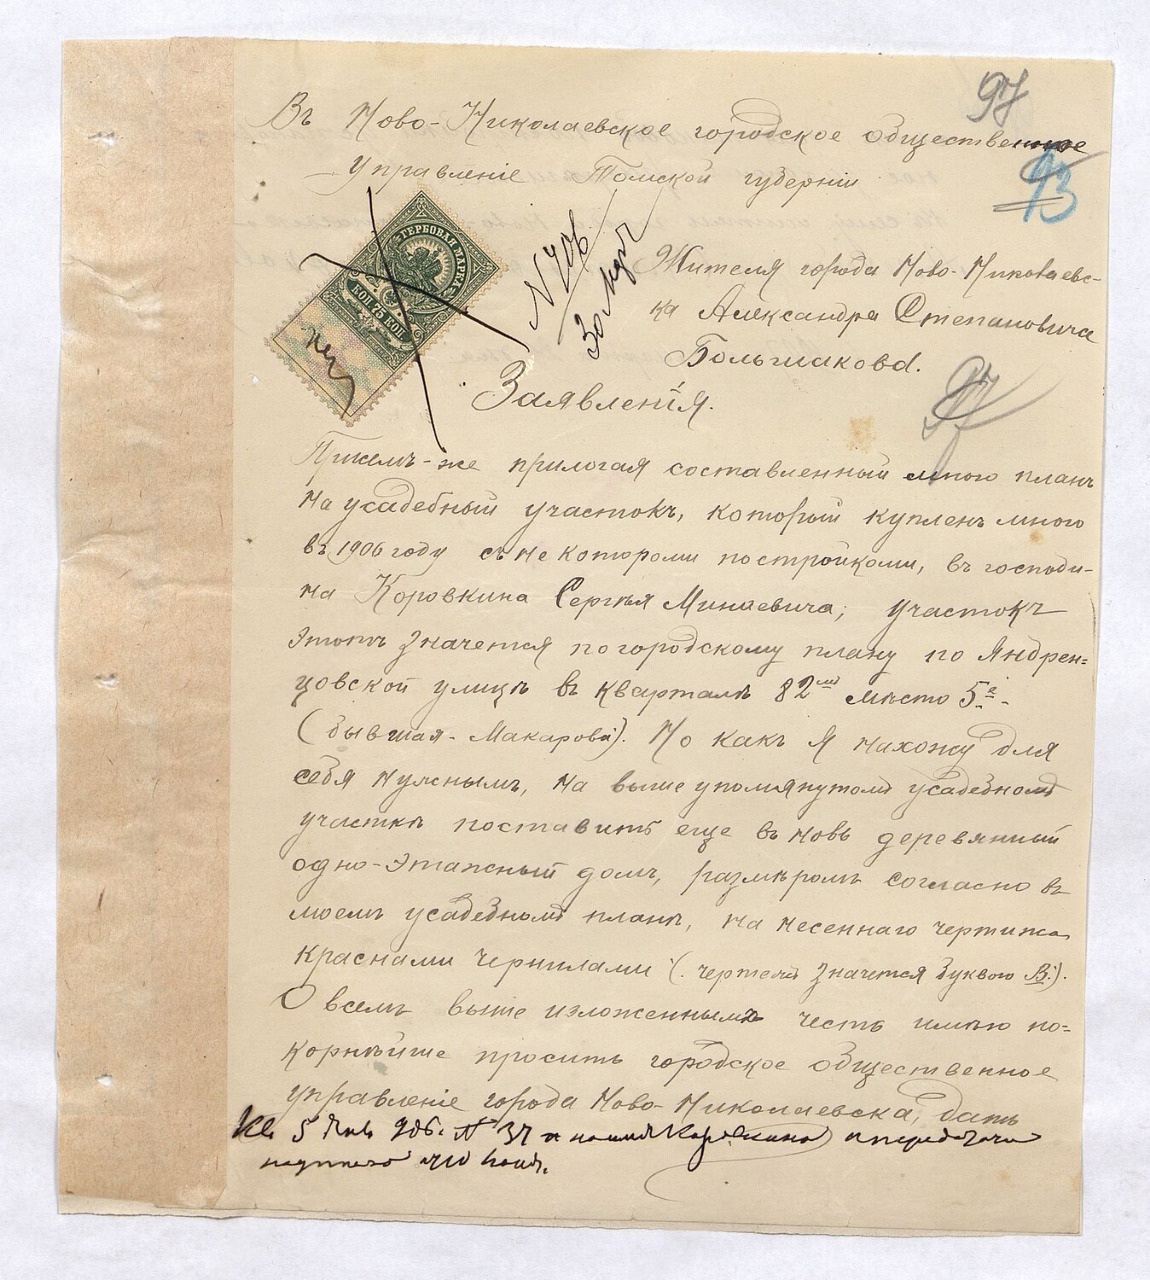 97
Въ Ново-Николаевское городское общественное
93
Управленіе Томской губерніи
ГЕРБОВАЯ МАРКА
75 КОП 75 КОП
N 706
30 Мрт
Жителя города Ново-Николаевс-
ка Александра Степановича
Большакова.
97
Заявленія.
Присемъ-же прилогая составленный мною планъ
на усадебный участокъ, который купленъ мною
въ 1906 году съ некотороми постройками, въ господи-
на Коровкина Сергѣя Минаевича; участокъ
этотъ значется по городскому плану по Яндрен=
цовской улицѣ въ кварталѣ 82мъ мѣсто 5е-
(бывшая-Макарова). Но какъ я нахожу для
себя нужнымъ, на выше упомянутомъ усадебномъ
участкѣ поставить еще въ новь деревянный
одно-этажный домъ, размѣромъ согласно въ
моемъ усадебномъ планѣ, на несеннаго чертижа
красными чернилами (. чертежъ значется буквою В.).
О всемъ выше изложеннымъ честь имѣю по-
корнѣйше просить городское общественное
управленіе города Ново-Николаевска, дать
Кв. 5 Янв 906. N 37 и Коровкина и передаточн